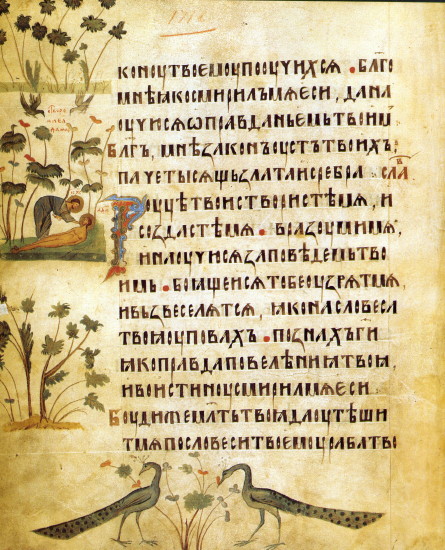 коноутвоемоупооучихсѧ • блг҃о
мнѣꙗкосмирилъмѧеси, дана
оучисѧѡправданьемьтвоим
блг҃ъ, мнѣзаконъоустътвоихъ,
пачетысѧщьзлатаисребра слав
Роуцѣтвоиствористемѧ, и
создастемѧ • вразоумимѧ,
инаоучюсѧзаповѣдемьтво
имь • боꙗщеисѧтобеоузрѧтмѧ,
ивъзвеселѧтсѧ, ꙗконасловеса
твоꙗоуповахъ • познахъги
ꙗкоправдаповелѣниꙗтвоꙗ,
ивоистиноусмирилмѧеси
Боудижемлт҃ьтвоꙗдаоутѣши
тмѧпословеситвоемоурабатво